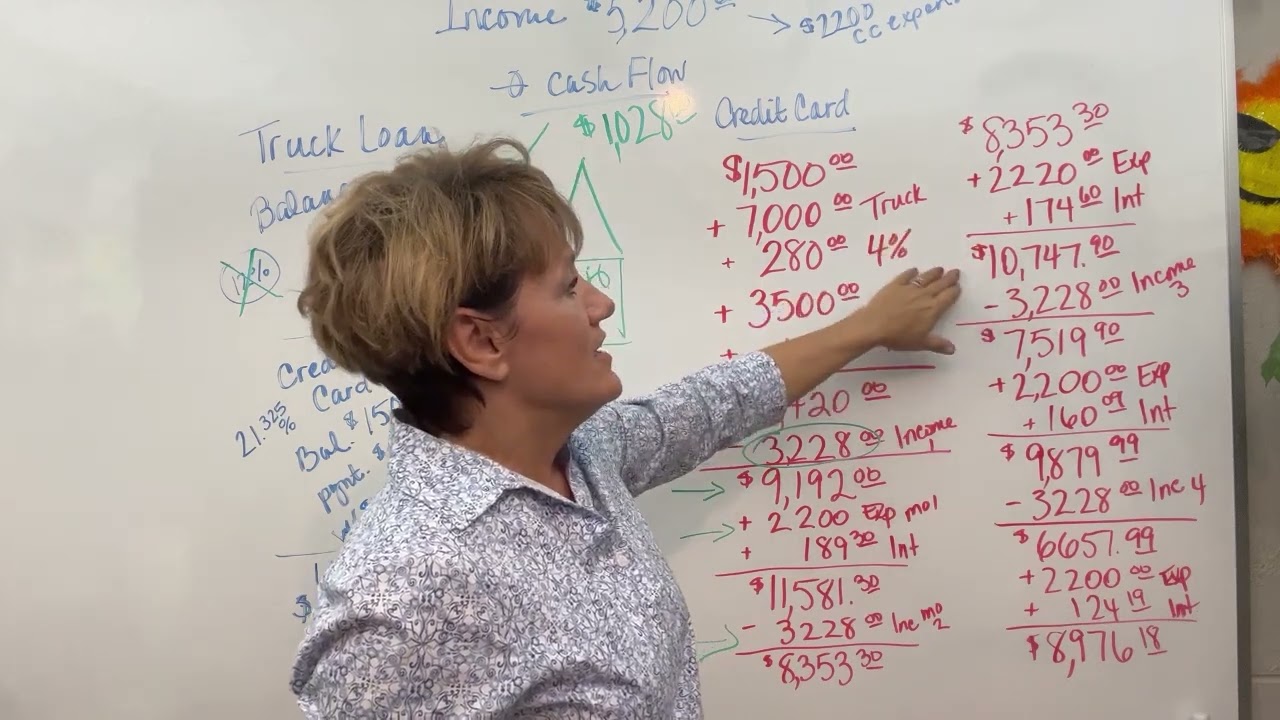 Income $5,200⁰⁰
→ $2200
cc expen
→ Cash Flow
$1,028
Truck Loan
Balan
12%
Cre
Card
21.325%
Bal. $150
pymt. $
$
Credit Card
$1,500⁰⁰
+ 7,000⁰⁰ Truck
+ 280⁰⁰ 4%
+ 3500⁰⁰
+
+20⁰⁰
3228⁰⁰ Income 1
→ $9,192⁰⁰
→ + 2200 Exp mo1
+ 189³⁰ Int
$11,581.³⁰
- 3228⁰⁰ Inc mo 2
$8,353³⁰
$8,353³⁰
+ 2220⁰⁰ Exp
+ 174⁶⁰ Int
$10,747.⁹⁰
- 3,228⁰⁰ Income 3
$7,519⁹⁰
+ 2,200⁰⁰ Exp
+ 160⁰⁹ Int
$9,879⁹⁹
- 3228⁰⁰ Inc 4
$6657.⁹⁹
+ 2200⁰⁰ Exp
+ 124¹⁹ Int
$8,976¹⁸